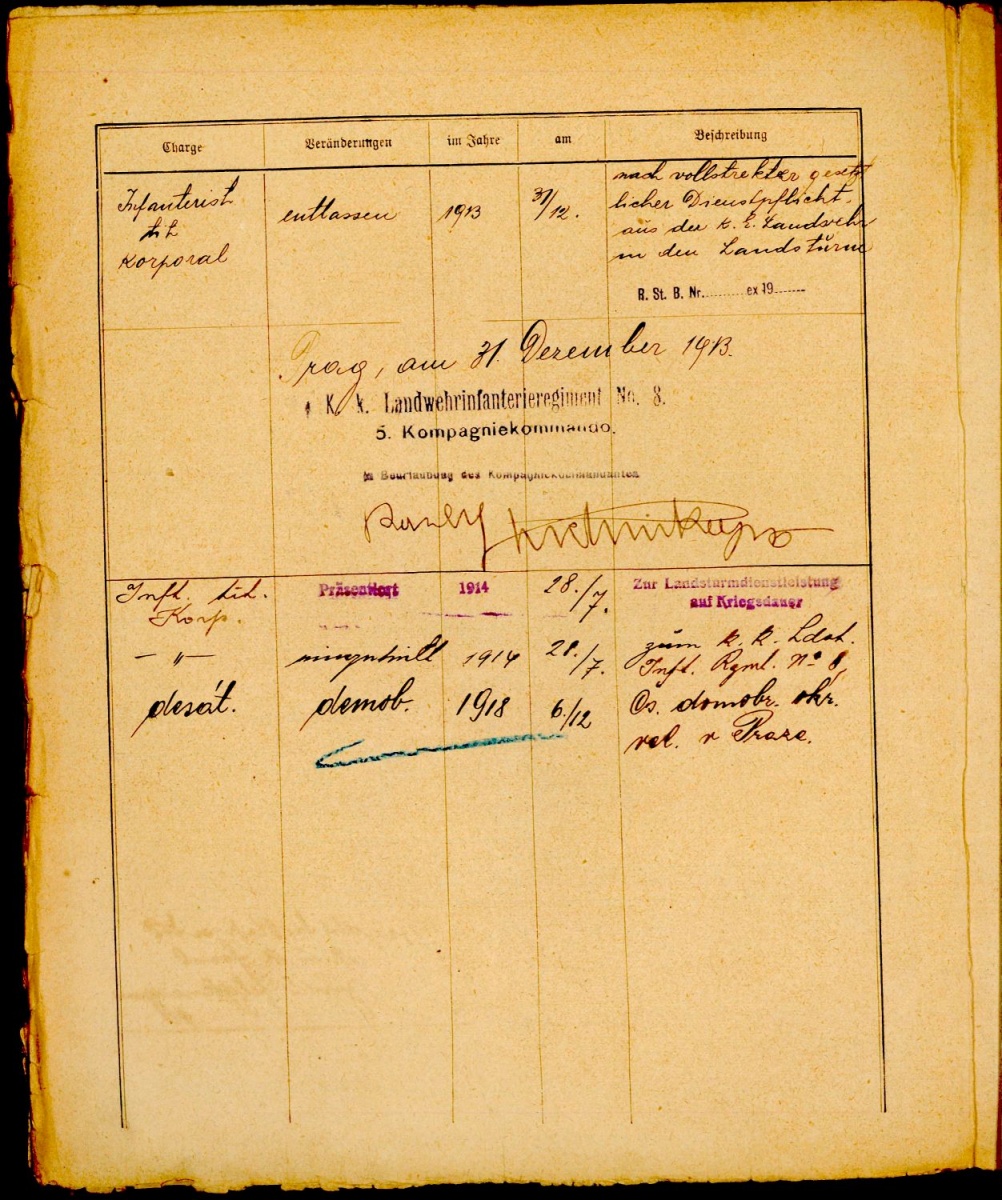 Charge Veränderungen im Jahre am Beschreibung
Infanterist entlassen 1913 31/12. nach vollstrekter gesetz
tit licher Dienstpflicht
Korporal aus der k. k. Landwehr
in den Landsturm
R. St. B. Nr. ex 19
Prag, am 31. Dezember 1913.
K. k. Landwehrinfanterieregiment No. 8.
5. Kompagniekommando.
In Beurlaubung des Kompagniekommandanten
Inft. tit. Präsentiert 1914 28./7. Zur Landsturmdienstleistung
Korp. auf Kriegsdauer
— „ — 1914 28./7. zum k. k. Ldst.
Inft. Rgmt. No 8,
desát. demob. 1918 6/12 Čs. domobr. okr.
vel. v Praze.